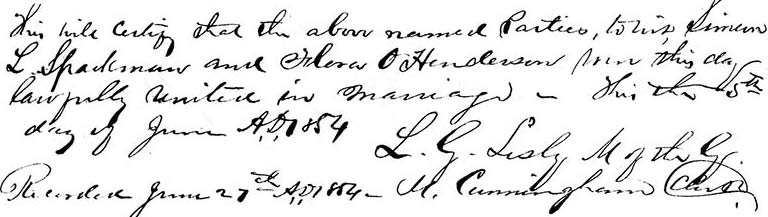 This will certify that the above named Parties, to wit, Simeon
L. Spackman and Flora O Henderson were this day
lawfully united in marriage – This the 5th
day of June A.D. 1854
L. G. Lesly M of the G.
Recorded June 27th A.D. 1854 – M. Cunningham Clerk